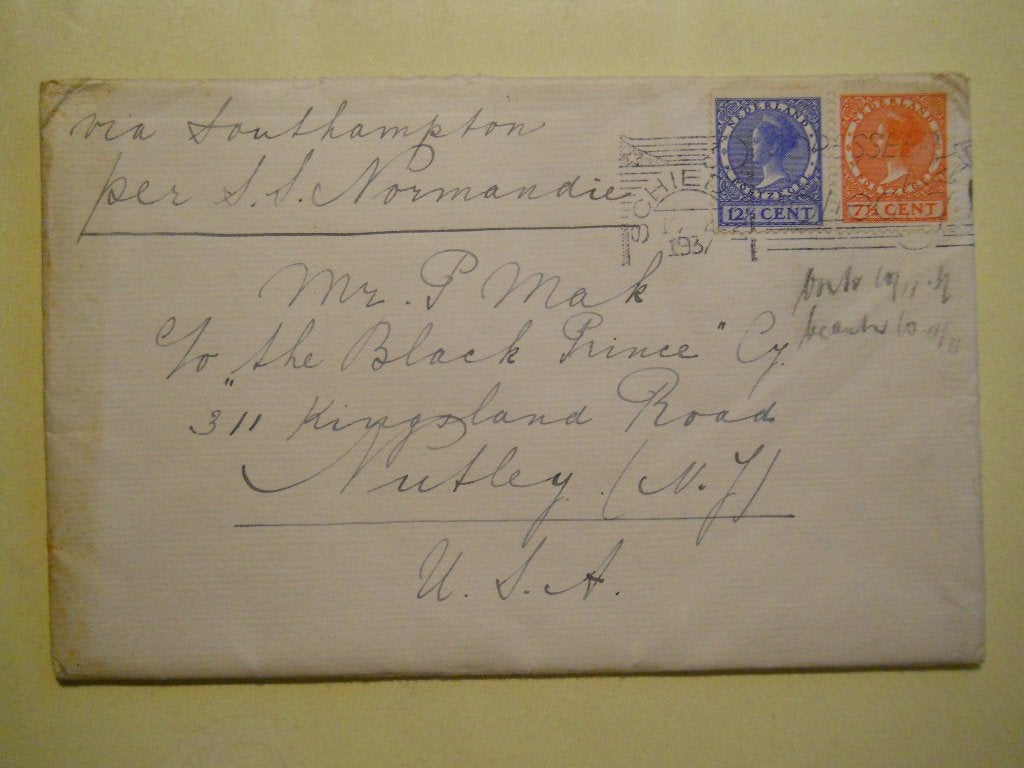 via Southampton
per S.S. Normandie
NEDERLAND
POSTZEGEL
12½ CENT
NEDERLAND
POSTZEGEL
7½ CENT
SCHIED
1937
Mr. P Mak
c/o "the Black Prince" Cy.
311 Kingsland Road
Nutley (N.J)
U.S.A.